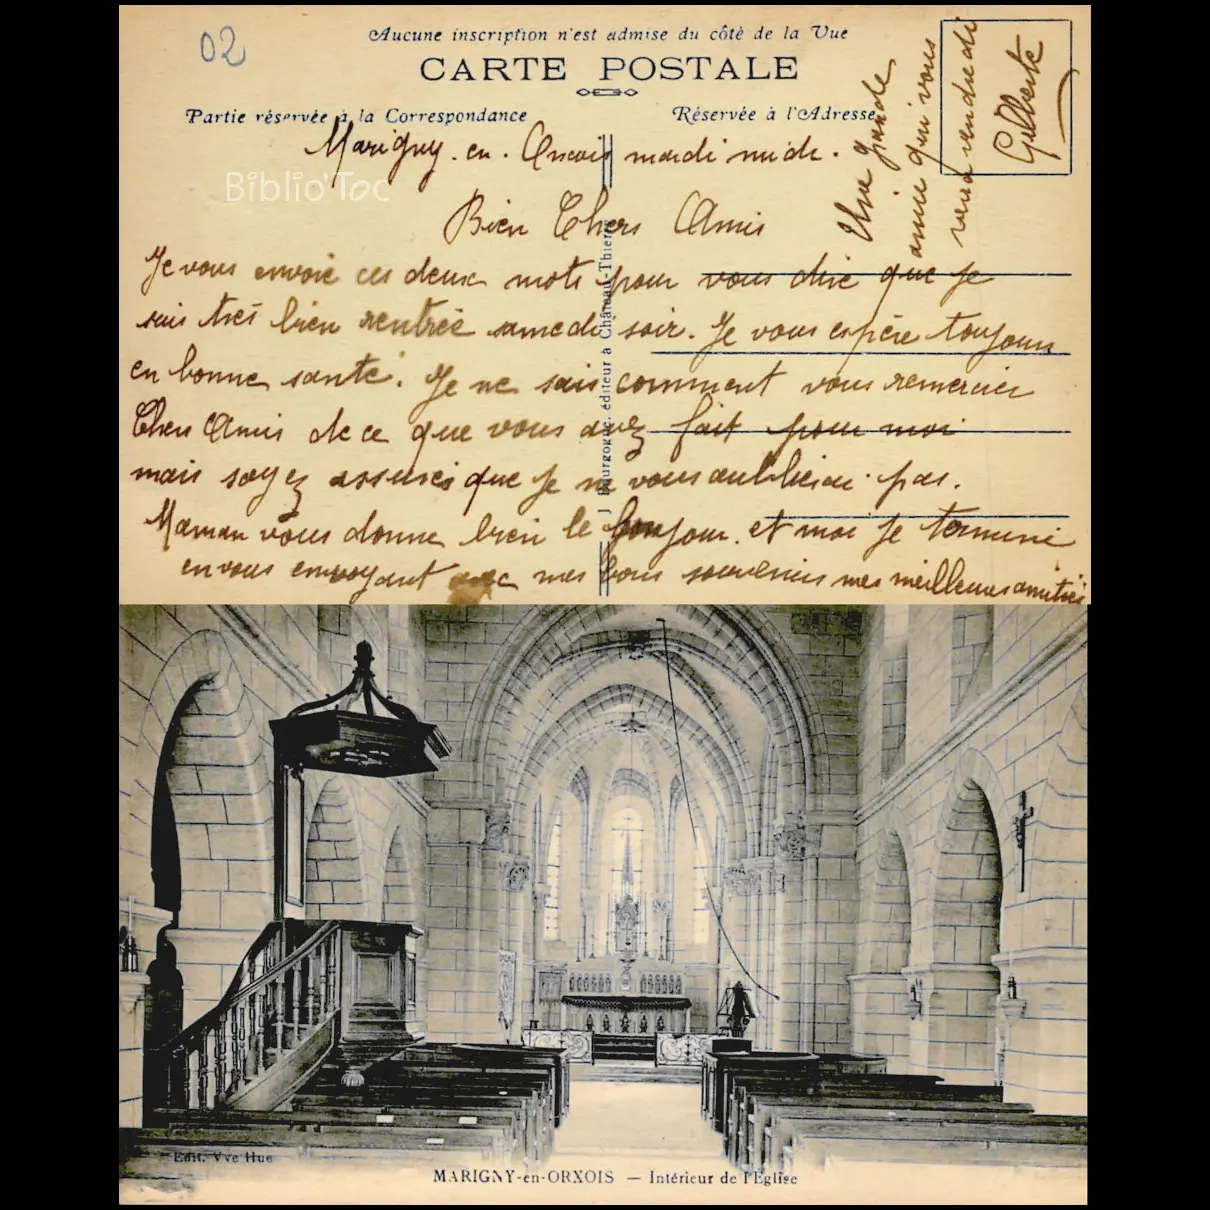 02
Aucune inscription n'est admise du côté de la Vue
CARTE POSTALE
Partie réservée à la Correspondance
Réservée à l'Adresse
Biblio'Toc
Marigny. en. Orxois mardi midi.
Bien Chers Amis
Je vous envoie ces deux mots pour vous dire que je
suis très bien rentrée samedi soir. Je vous espère toujours
en bonne santé. Je ne sais comment vous remercier
Chers Amis de ce que vous avez fait pour moi
mais soyez assurés que je ne vous oublierai pas.
Maman vous donne bien le bonjour. et moi je termine
en vous envoyant avec mes bons souvenirs mes meilleures amitiés
Une grande
amie qui vous
verra vendredi
Gilberte
J. Bourgogne, éditeur à Château-Thierry
Edit. Vve Hue
MARIGNY-en-ORXOIS — Intérieur de l'Eglise